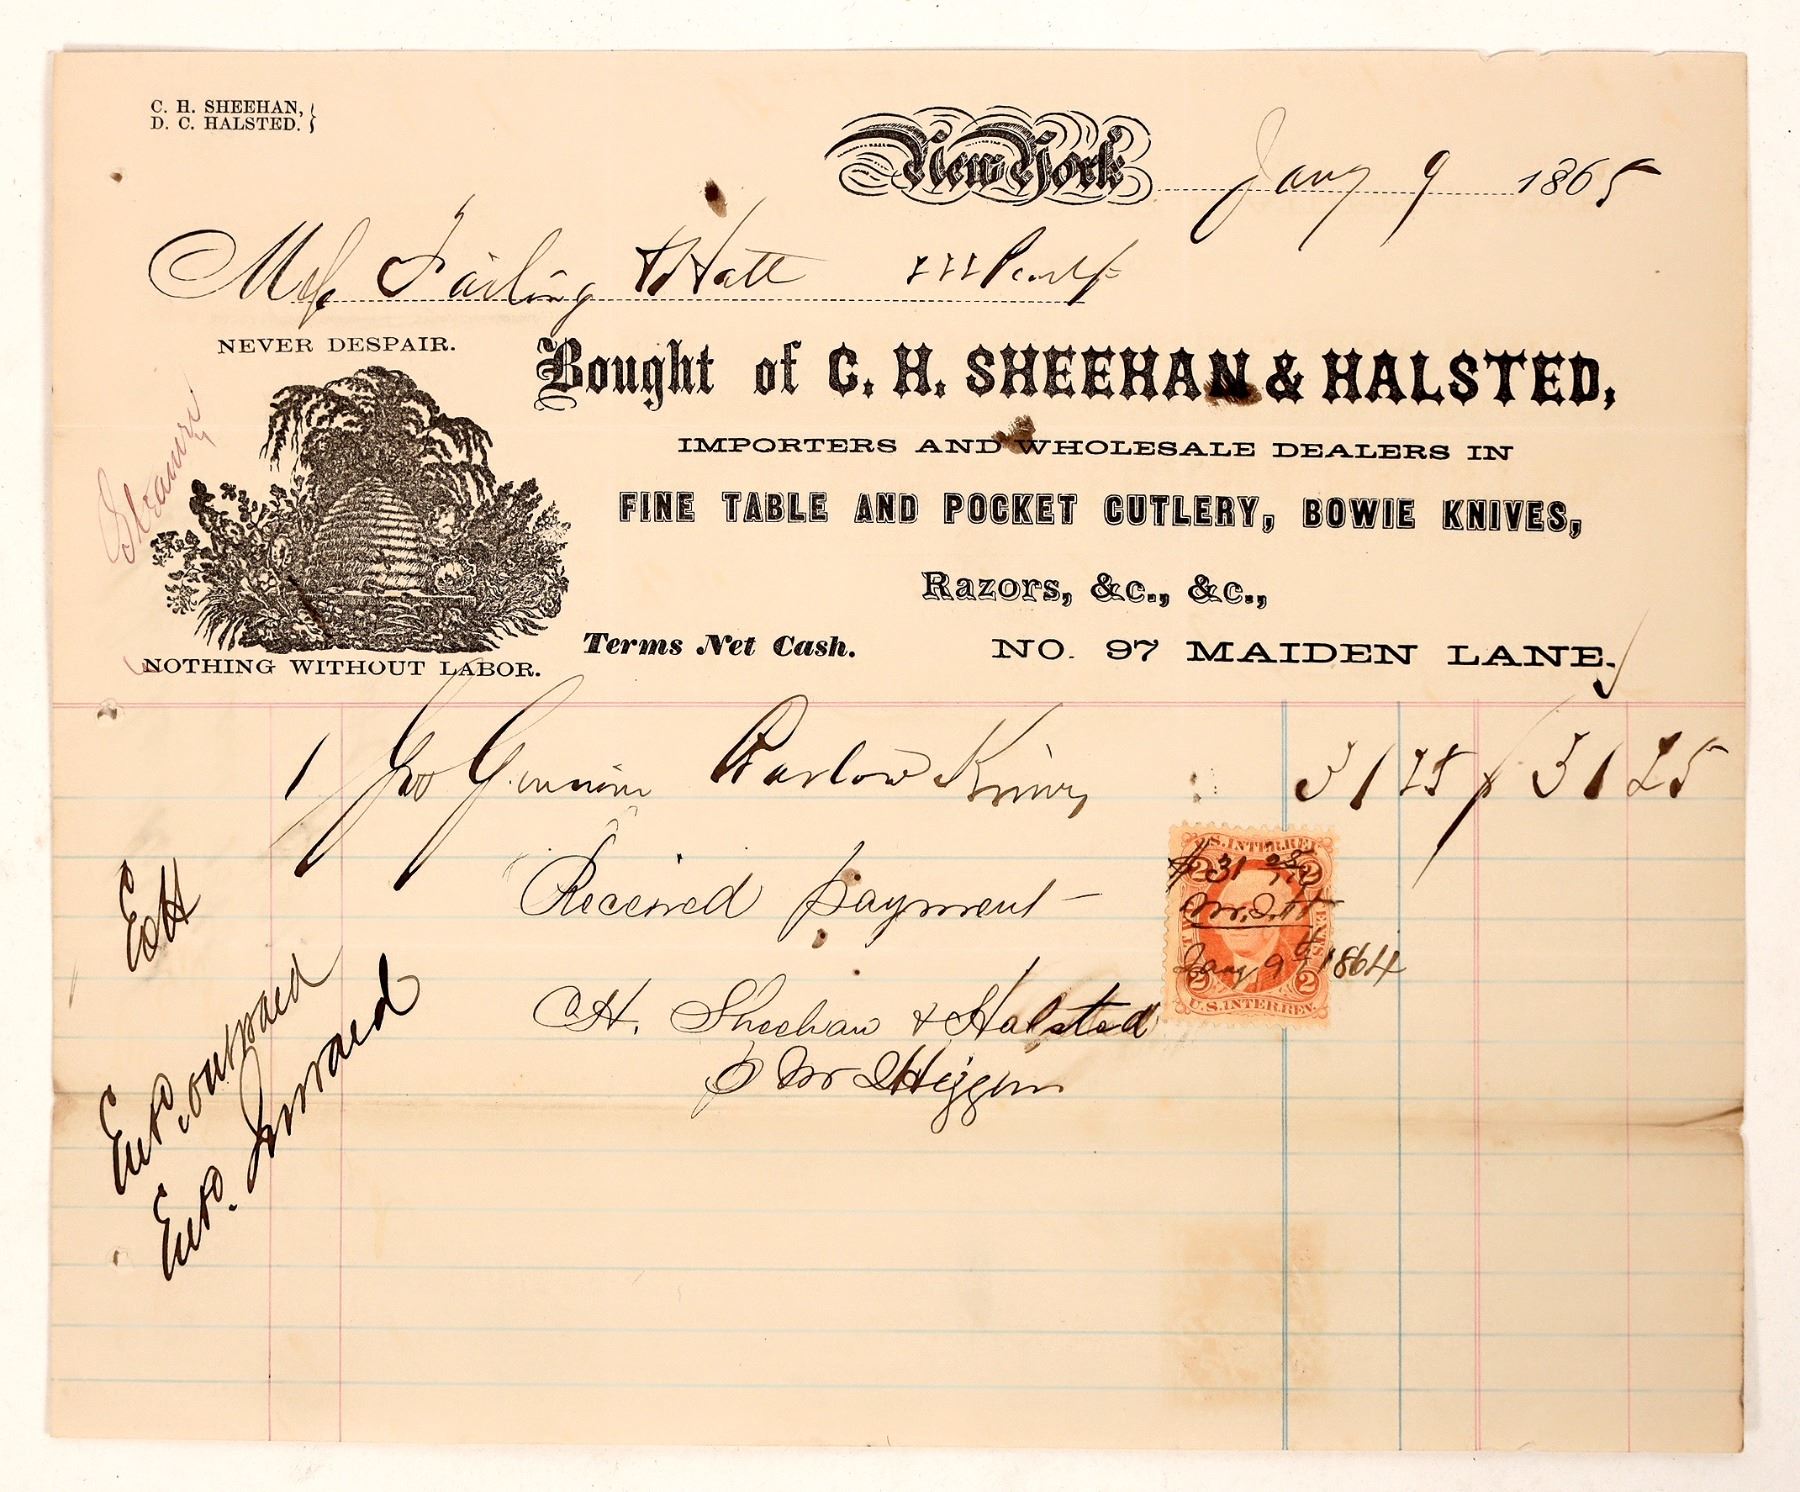 C. H. SHEEHAN,
D. C. HALSTED.
New York Jany 9 1865
Mess Failing & Hatt 222 Pearl
NEVER DESPAIR.
Bought of C. H. SHEEHAN & HALSTED,
IMPORTERS AND WHOLESALE DEALERS IN
FINE TABLE AND POCKET CUTLERY, BOWIE KNIVES,
Razors, &c., &c.,
Terms Net Cash. NO. 97 MAIDEN LANE.
NOTHING WITHOUT LABOR.
Steamer
1 Gro Genuine Barlow Knives 31 25 $ 31 25
Received payment
CH. Sheehan & Halsted
Higgins
U.S. INTER. REV.
2 2
$31 25
Jany 9th 1864
2 2
U.S. INTER. REV.
Entd. outward
Entd. Inward